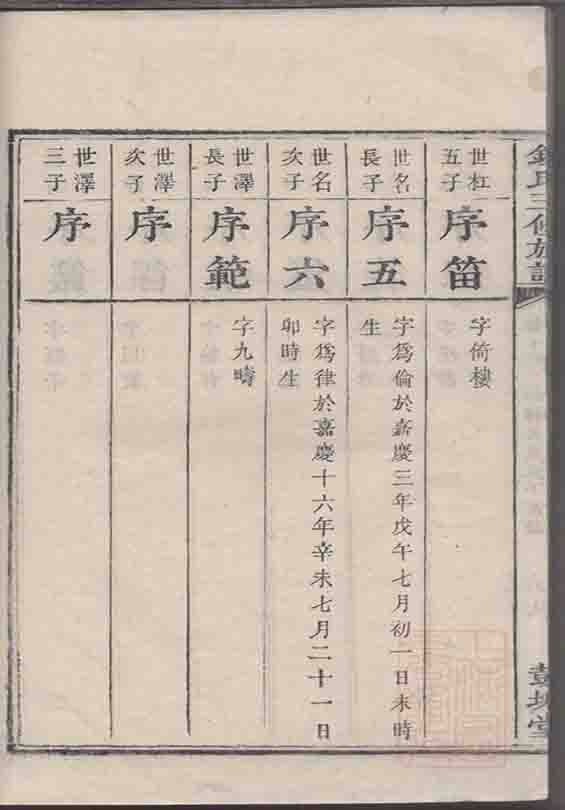 氏三修族譜
世杠五子
序笛
字倚樓
世名長子
序五
字爲倫於嘉慶三年戊午七月初一日未時
生
世名次子
序六
字爲律於嘉慶十六年辛未七月二十一日
卯時生
世澤長子
序範
字九疇
世澤次子
序
世澤三子
序